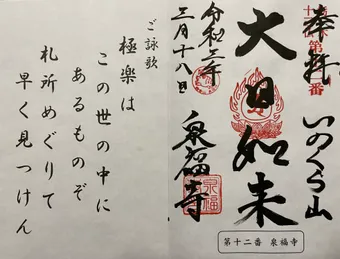 奉拝
第十二番
いのくら山
大日如来
令和三年
三月十八日
泉福寺
泉福寺
第十二番 泉福寺
ご詠歌
極楽は
この世の中に
あるものぞ
札所めぐりて
早く見つけん